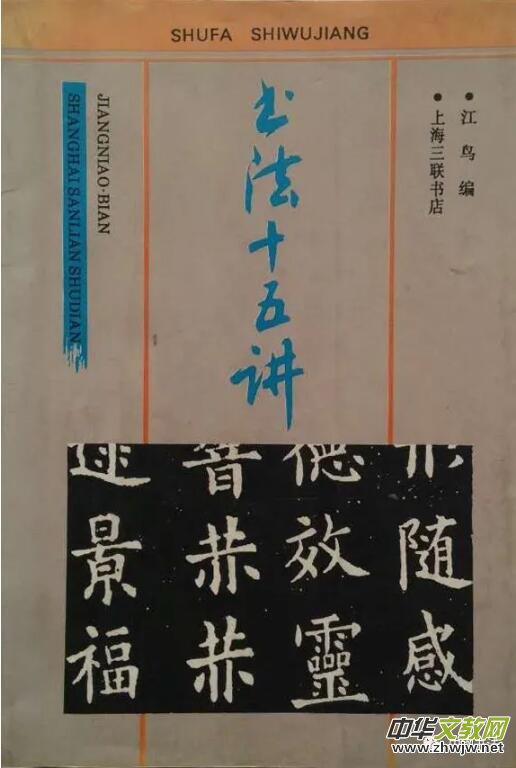 SHUFA SHIWUJIANG
江鸟编
上海三联书店
书法十五讲
JIANGNIAO·BIAN
SHANGHAI SANLIAN SHUDIAN
随感
德效靈
音
景福
中华文教网
www.zhwjw.net